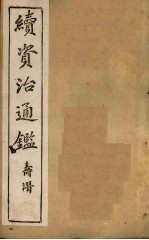 續資治通鑑
壽潛